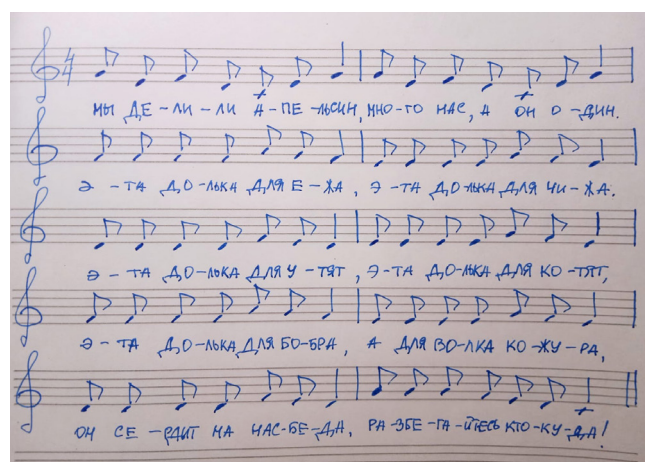 МЫ ДЕ-ЛИ-ЛИ А-ПЕ-ЛЬСИН, МНО-ГО НАС, А ОН О-ДИН.
Э-ТА ДО-ЛЬКА ДЛЯ Е-ЖА, Э-ТА ДО-ЛЬКА ДЛЯ ЧИ-ЖА.
Э-ТА ДО-ЛЬКА ДЛЯ У-ТЯТ, Э-ТА ДО-ЛЬКА ДЛЯ КО-ТЯТ,
Э-ТА ДО-ЛЬКА ДЛЯ БО-БРА, А ДЛЯ ВО-ЛКА КО-ЖУ-РА,
ОН СЕ-РДИТ НА НАС-БЕ-ДА, РА-ЗБЕ-ГА-ЙТЕСЬ КТО-КУ-ДА!